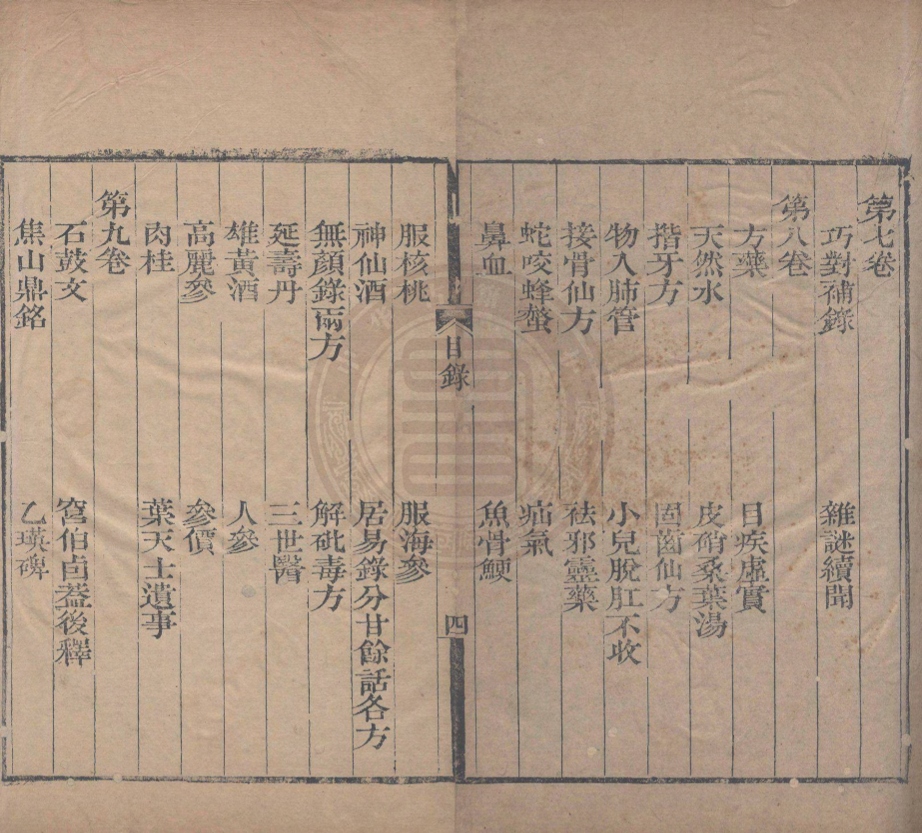 第七卷
巧對補錄　雜謎續聞
第八卷
方藥　目疾虛實
天然水　皮硝桑葉湯
揩牙方　固齒仙方
物入肺管　小兒脫肛不收
接骨仙方　祛邪靈藥
蛇咬蜂螫　疝氣
鼻血　魚骨鯁
目錄　四
服核桃　服海參
神仙酒　居易錄分甘餘話各方
無顏錄兩方　解砒毒方
延壽丹　三世醫
雄黃酒　人參
高麗參　參價
肉桂　葉天士遺事
第九卷
石鼓文　𡩋伯卣蓋後釋
焦山鼎銘　乙瑛碑